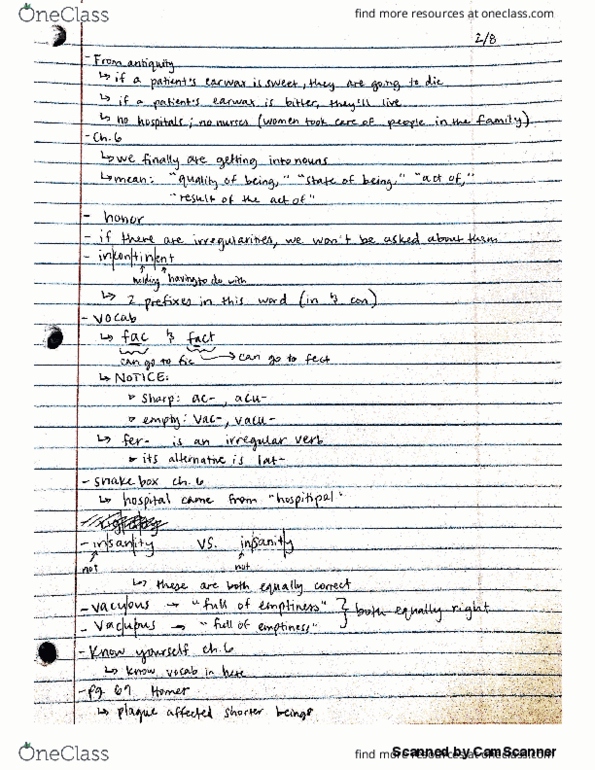 OneClass
find more resources at oneclass.com
2/8
- From antiquity
↳ if a patient's earwax is sweet, they are going to die
↳ if a patient's earwax is bitter, they'll live
↳ no hospitals; no nurses (women took care of people in the family)
- Ch. 6
↳ we finally are getting into nouns
↳ mean: "quality of being," "state of being," "act of,"
"result of the act of"
- honor
- if there are irregularities, we won't be asked about them
- in|con|tin|ent
holding having to do with
↳ 2 prefixes in this word (in & con)
- vocab
↳ fac & fact
can go to fic → can go to fect
↳ NOTICE:
▹ sharp: ac-, acu-
▹ empty: vac-, vacu-
↳ fer- is an irregular verb
▹ its alternative is lat-
- snake box ch. 6
↳ hospital came from "hospitipal"
- in|san|ity vs. in|sanit|y
not not
↳ these are both equally correct
- vacu|ous → "full of emptiness" } both equally right
- vac|uous → "full of emptiness"
- Know yourself ch. 6
↳ know vocab in here
- pg 67 Homer
↳ plague affected shorter beings
OneClass
find more resources at oneclass.com
Scanned by CamScanner